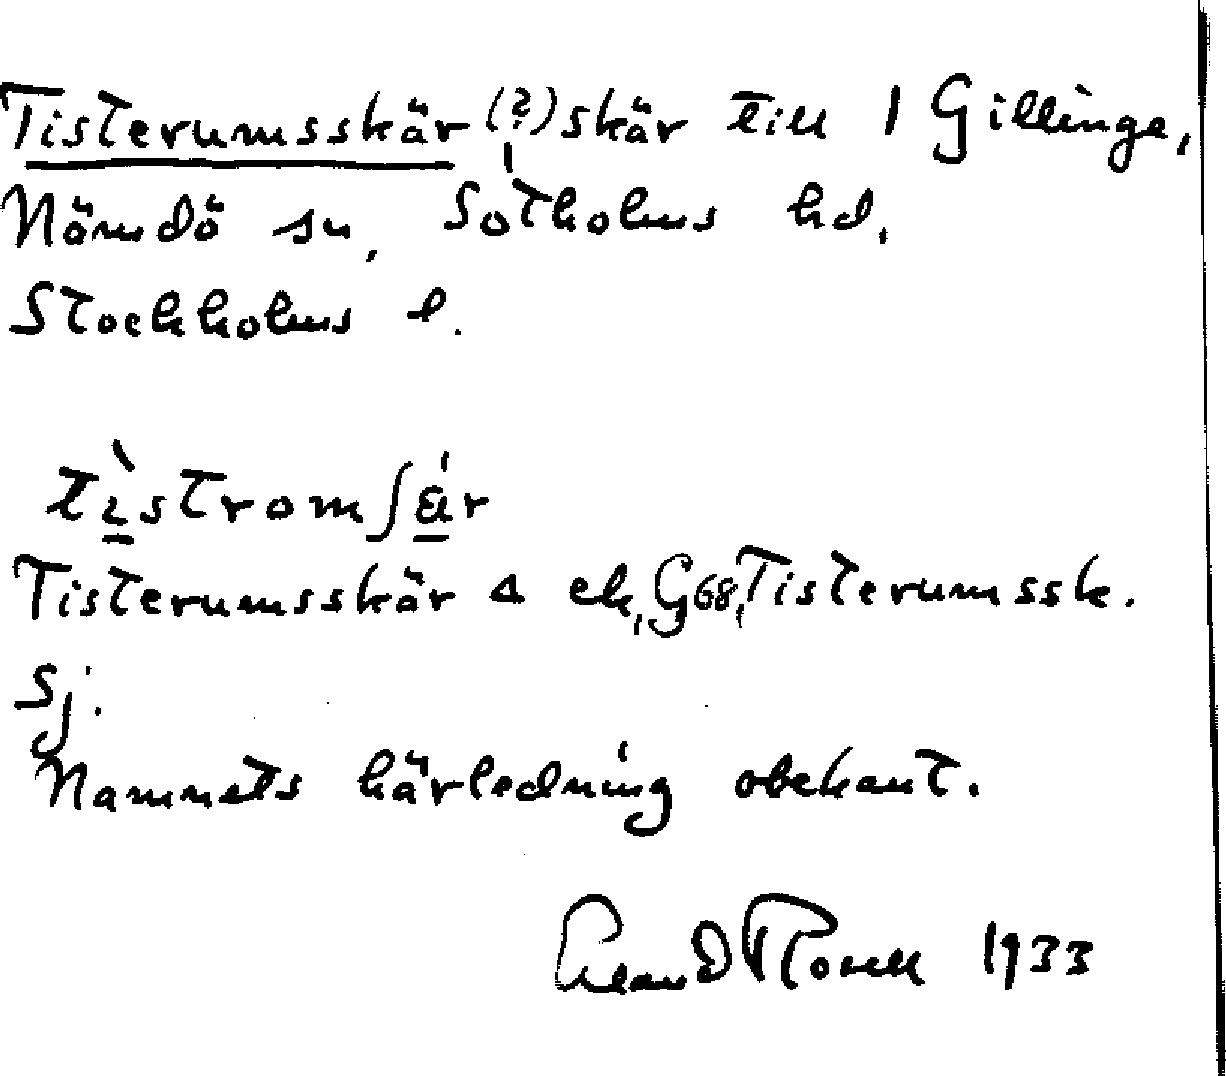 Tisterumsskär (?) skär till 1 Gillinge,
Nämdö sn, Sotholms hd,
Stockholms l.
tìstromʃɛ́r
Tisterumsskär ▵ ek, G68, Tisterumssk.
Sj.
Namnets härledning obekant.
1933